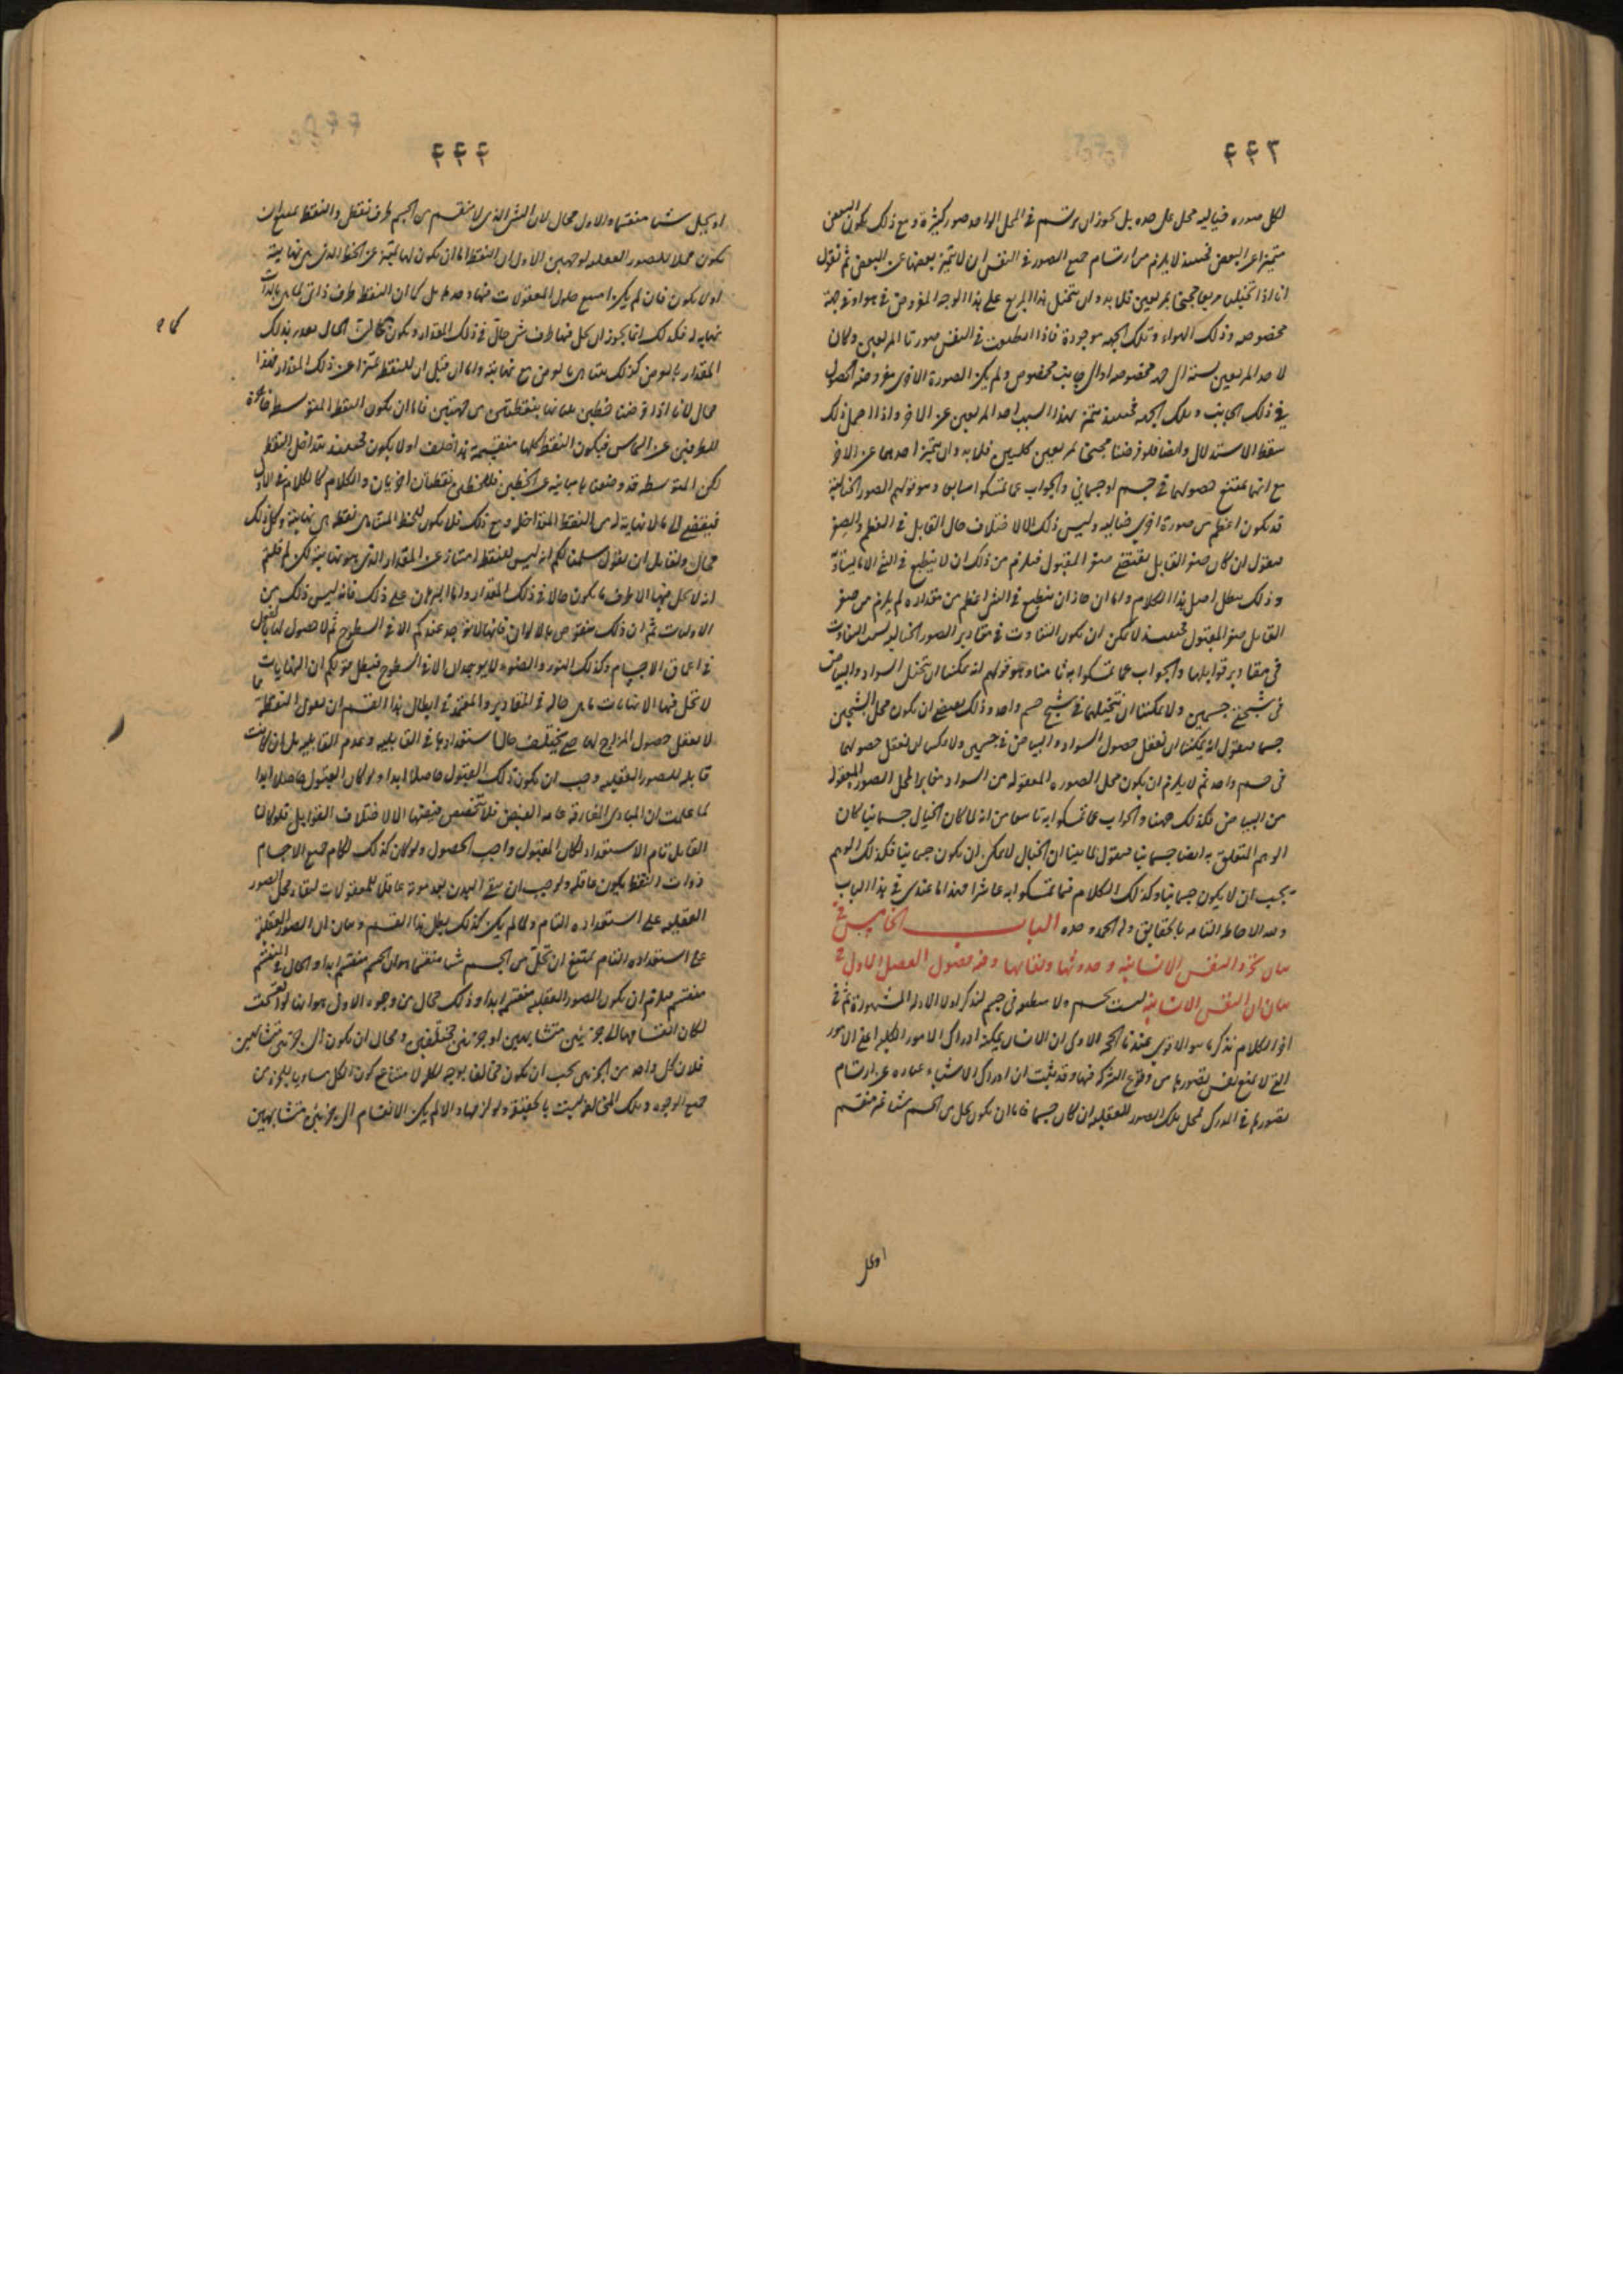 ٤٤٣
لكل صوره خياليه محل على حده بل يجوز ان يرتسم فى المحل الواحد صور كثيرة و مع ذلك يكون البعض
متميزا عن البعض فحينئذ لا يلزم من ارتسام جميع الصور فى النفس ان لا يتميز بعضها عن البعض ثم نقول
انا اذا تخيلنا مربعا مجنحا بمربعين فلابد وان يتخيل هذا المربع على هذا الوجه المفروض فى هواء و جهة
مخصوصه و ذلك الهواء و تلك الجهه موجودة فاذا انطبعت فى النفس صورتا المربعين و كان
لاحد المربعين نسبة الى جهه مخصوصه او الى جانب مخصوص و لم يكن الصورة الاخرى مفروضه الحصول
فى ذلك الجانب و تلك الجهه فحينئذ يتميز بهذا السبب احد المربعين عن الاخر و اذا احتمل ذلك
سقط الاستدلال و ايضا فلو فرضنا مجنحا بمربعين كليين فلابد وان يتميز احدهما عن الاخر
مع انها يمتنع حصولها فى جسم او جسمانى و الجواب عما تمسكوا به سابعا و هو قولهم الصور الخيالية
قد يكون اعظم من صورة اخرى خياليه و ليس ذلك الا لاختلاف حال القابل فى العظم و الصغر
فنقول ان كان صغر القابل يقتضى صغر المقبول فيلزم من ذلك ان لا ينطبع فى الشئ الا ما يساويه
و ذلك يبطل اصل هذا الكلام و اما ان جاز ان ينطبع فى الشئ اعظم من مقداره لم يلزم من صغر
القابل صغر المقبول فحينئذ لا يمكن ان يكون التفاوت فى مقادير الصور الخياليه بسبب التفاوت
فى مقادير قوابلها و الجواب عما تمسكوا به ثامنا و هو قولهم انه يمكننا ان نتخيل السواد و البياض
فى شبحى جسمين و لا يمكننا ان نتخيلهما فى شبح جسم واحد و ذلك يقتضى ان يكون محل الشبحين
جسما فنقول انه يمكننا ان نعقل حصول السواد و البياض فى جسمين و لا يمكننا ان نعقل حصولهما
فى جسم واحد ثم لا يلزم ان يكون محل الصوره المعقوله من السواد مغايرا لمحل الصور المعقولة
من البياض فكذلك ههنا و الجواب عما تمسكوا به تاسعا من انه لما كان الخيال جسمانيا كان
الوهم المتعلق به ايضا جسمانيا فنقول لما بينا ان الخيال لا يمكن ان يكون جسمانيا فكذلك الوهم
يجب ان لا يكون جسمانيا و كذلك الكلام فيما تمسكوا به عاشرا فهذا ما عندى فى هذا الباب
و لله الاحاطه التامه بالحقايق و له الحمد وحده الباب الخامس فى
بيان تجرد النفس الانسانية و حدوثها و بقائها و فيه فصول الفصل الاول فى
بيان ان النفس الانسانية ليست بجسم و لا منطبعه فى جسم لنذكر اولا الادلة المشهورة ثم فى
اخر الكلام نذكر ما هو الاقوى عندنا الحجه الاولى ان الانسان يمكنه ادراك الامور الكليه اعنى الامور
التى لا يمنع نفس تصورها من وقوع الشركه فيها و قد ثبت ان ادراك الاشياء عباره عن ارتسام
تصورها فى المدرك فمحل تلك الصور العقليه ان كان جسما فاما ان يكون يحل من الجسم شيئا غير منقسم
او يحل
٤٤٤
او يحل شيئا منقسما و الاول محال لان الشئ الذى لا ينقسم من الجسم طرف نقطى و النقطة يمتنع ان
يكون محلا للصور العقليه لوجهين الاول ان النقطة اما ان يكون لها تميز عن الخط الذى هى نهايته
او لا يكون فان لم يكن امتنع حلول المعقولات فيها وحدها بل كما ان النقطة طرف ذاتى لما هى بالذات
نهايه له فكذلك انما يجوز ان يحل فيها طرف شئ حال فى ذلك المقدار و يكون كما ان الحال يتقدر بذلك
المقدار بالعرض كذلك يتناهى بالعرض مع نهايته و اما ان قيل ان للنقطه تميزا عن ذلك المقدار فهذا
محال لانا اذا فرضنا خطين يلقيانها بنقطتين من جهتين فاما ان يكون النقطة المتوسطه حاجزة
للطرفين عن التماس فيكون النقط كلها منقسمة هذا خلف او لا يكون فحينئذ يتداخل النقط
لكن المتوسطه قد وضعناها مباينة عن الخطين فللخطين نقطتان اخريان و الكلام كالكلام فى الاول
فيفضى الى ما لا نهاية له من النقط المتداخله و مع ذلك فلا يكون للخط المتناهى نقطة هى نهايته و كل ذلك
محال و لقائل ان يقول سلمنا لكم انه ليس للنقطة امتياز عن المقدار الذى هو نهايته لكن لم قلتم
انه لا يحل فيها الا طرف ما يكون حالا فى ذلك المقدار و اما البرهان على ذلك فانه ليس ذلك من
الاوليات ثم ان ذلك منقوض بالالوان فانها لا توجد عندكم الا فى السطوح ثم لا حصول لها بالفعل
فى اعماق الاجسام و كذلك النور و الضوء لا يوجدان الا فى السطوح فبطل قولكم ان النهايات
لا تحل فيها الا نهايات ما هى حاله فى المقادير و المعتمد فى ابطال هذا القسم ان نقول النقطة
لا يعقل حصول المزاج لها حتى يختلف حال استعدادها فى القابليه و عدم القابليه بل ان كانت
قابله للصور العقليه وجب ان يكون ذلك القبول حاصلا ابدا و لو كان القبول حاصلا ابدا
لما علمت ان المبادى المفارقه عامه الفيض فلا يتخصص فيضها الا لاختلاف القوابل فلو كان
القابل تام الاستعداد لكان المقبول واجب الحصول و لو كان كذلك لكان جميع الاجسام
ذوات النقط يكون عاقله و لوجب ان يبقى البدن بعد موته عاقلا للمعقولات لبقاء محل الصور
العقليه على استعداده التام و لما لم يكن كذلك بطل هذا القسم و بيان ان الصور العقلية
على استعداده التام يمتنع ان تحل من الجسم شيئا منقسما هو ان الجسم منقسم ابدا و الحال فى المنقسم
منقسم فيلزم ان يكون الصور العقليه منقسمه ابدا و ذلك محال من وجوه الاول هو انها لو انقسمت
لكان انقسامها الى جزئين متشابهين او جزئين مختلفين و محال ان يكون الى جزئين متشابهين
فلان كل واحد من الجزئين يجب ان يكون مخالفا بوجه للكل لامتناع كون الكل مساويا للجزء من
جميع الوجوه و تلك المخالفه ليست بالحقيقة و لوازمها و الا لم يكن الانقسام الى جزئين متشابهين